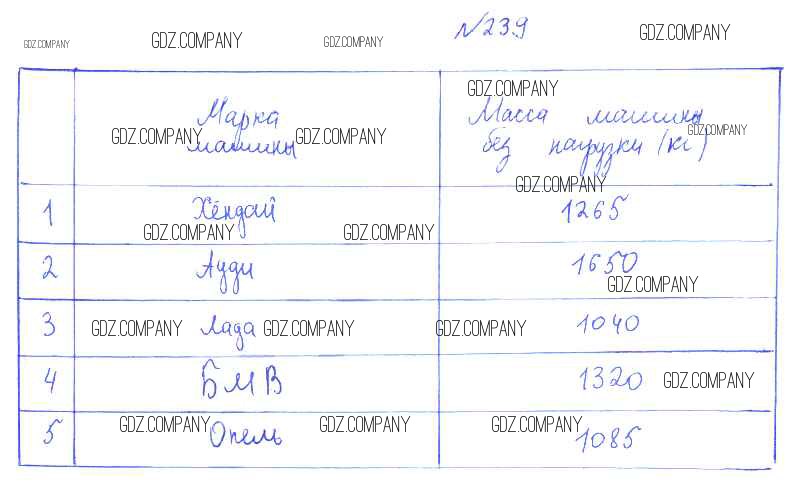 №239
GDZ.COMPANY GDZ.COMPANY GDZ.COMPANY GDZ.COMPANY
GDZ.COMPANY
Марка
машины
Масса машины
без нагрузки (кг)
GDZ.COMPANY GDZ.COMPANY GDZ.COMPANY
GDZ.COMPANY
1 Хёндай 1265
GDZ.COMPANY GDZ.COMPANY
2 Ауди 1650
GDZ.COMPANY
3 GDZ.COMPANY Лада GDZ.COMPANY GDZ.COMPANY 1040
4 БМВ 1320 GDZ.COMPANY
5 GDZ.COMPANY Опель GDZ.COMPANY GDZ.COMPANY 1085